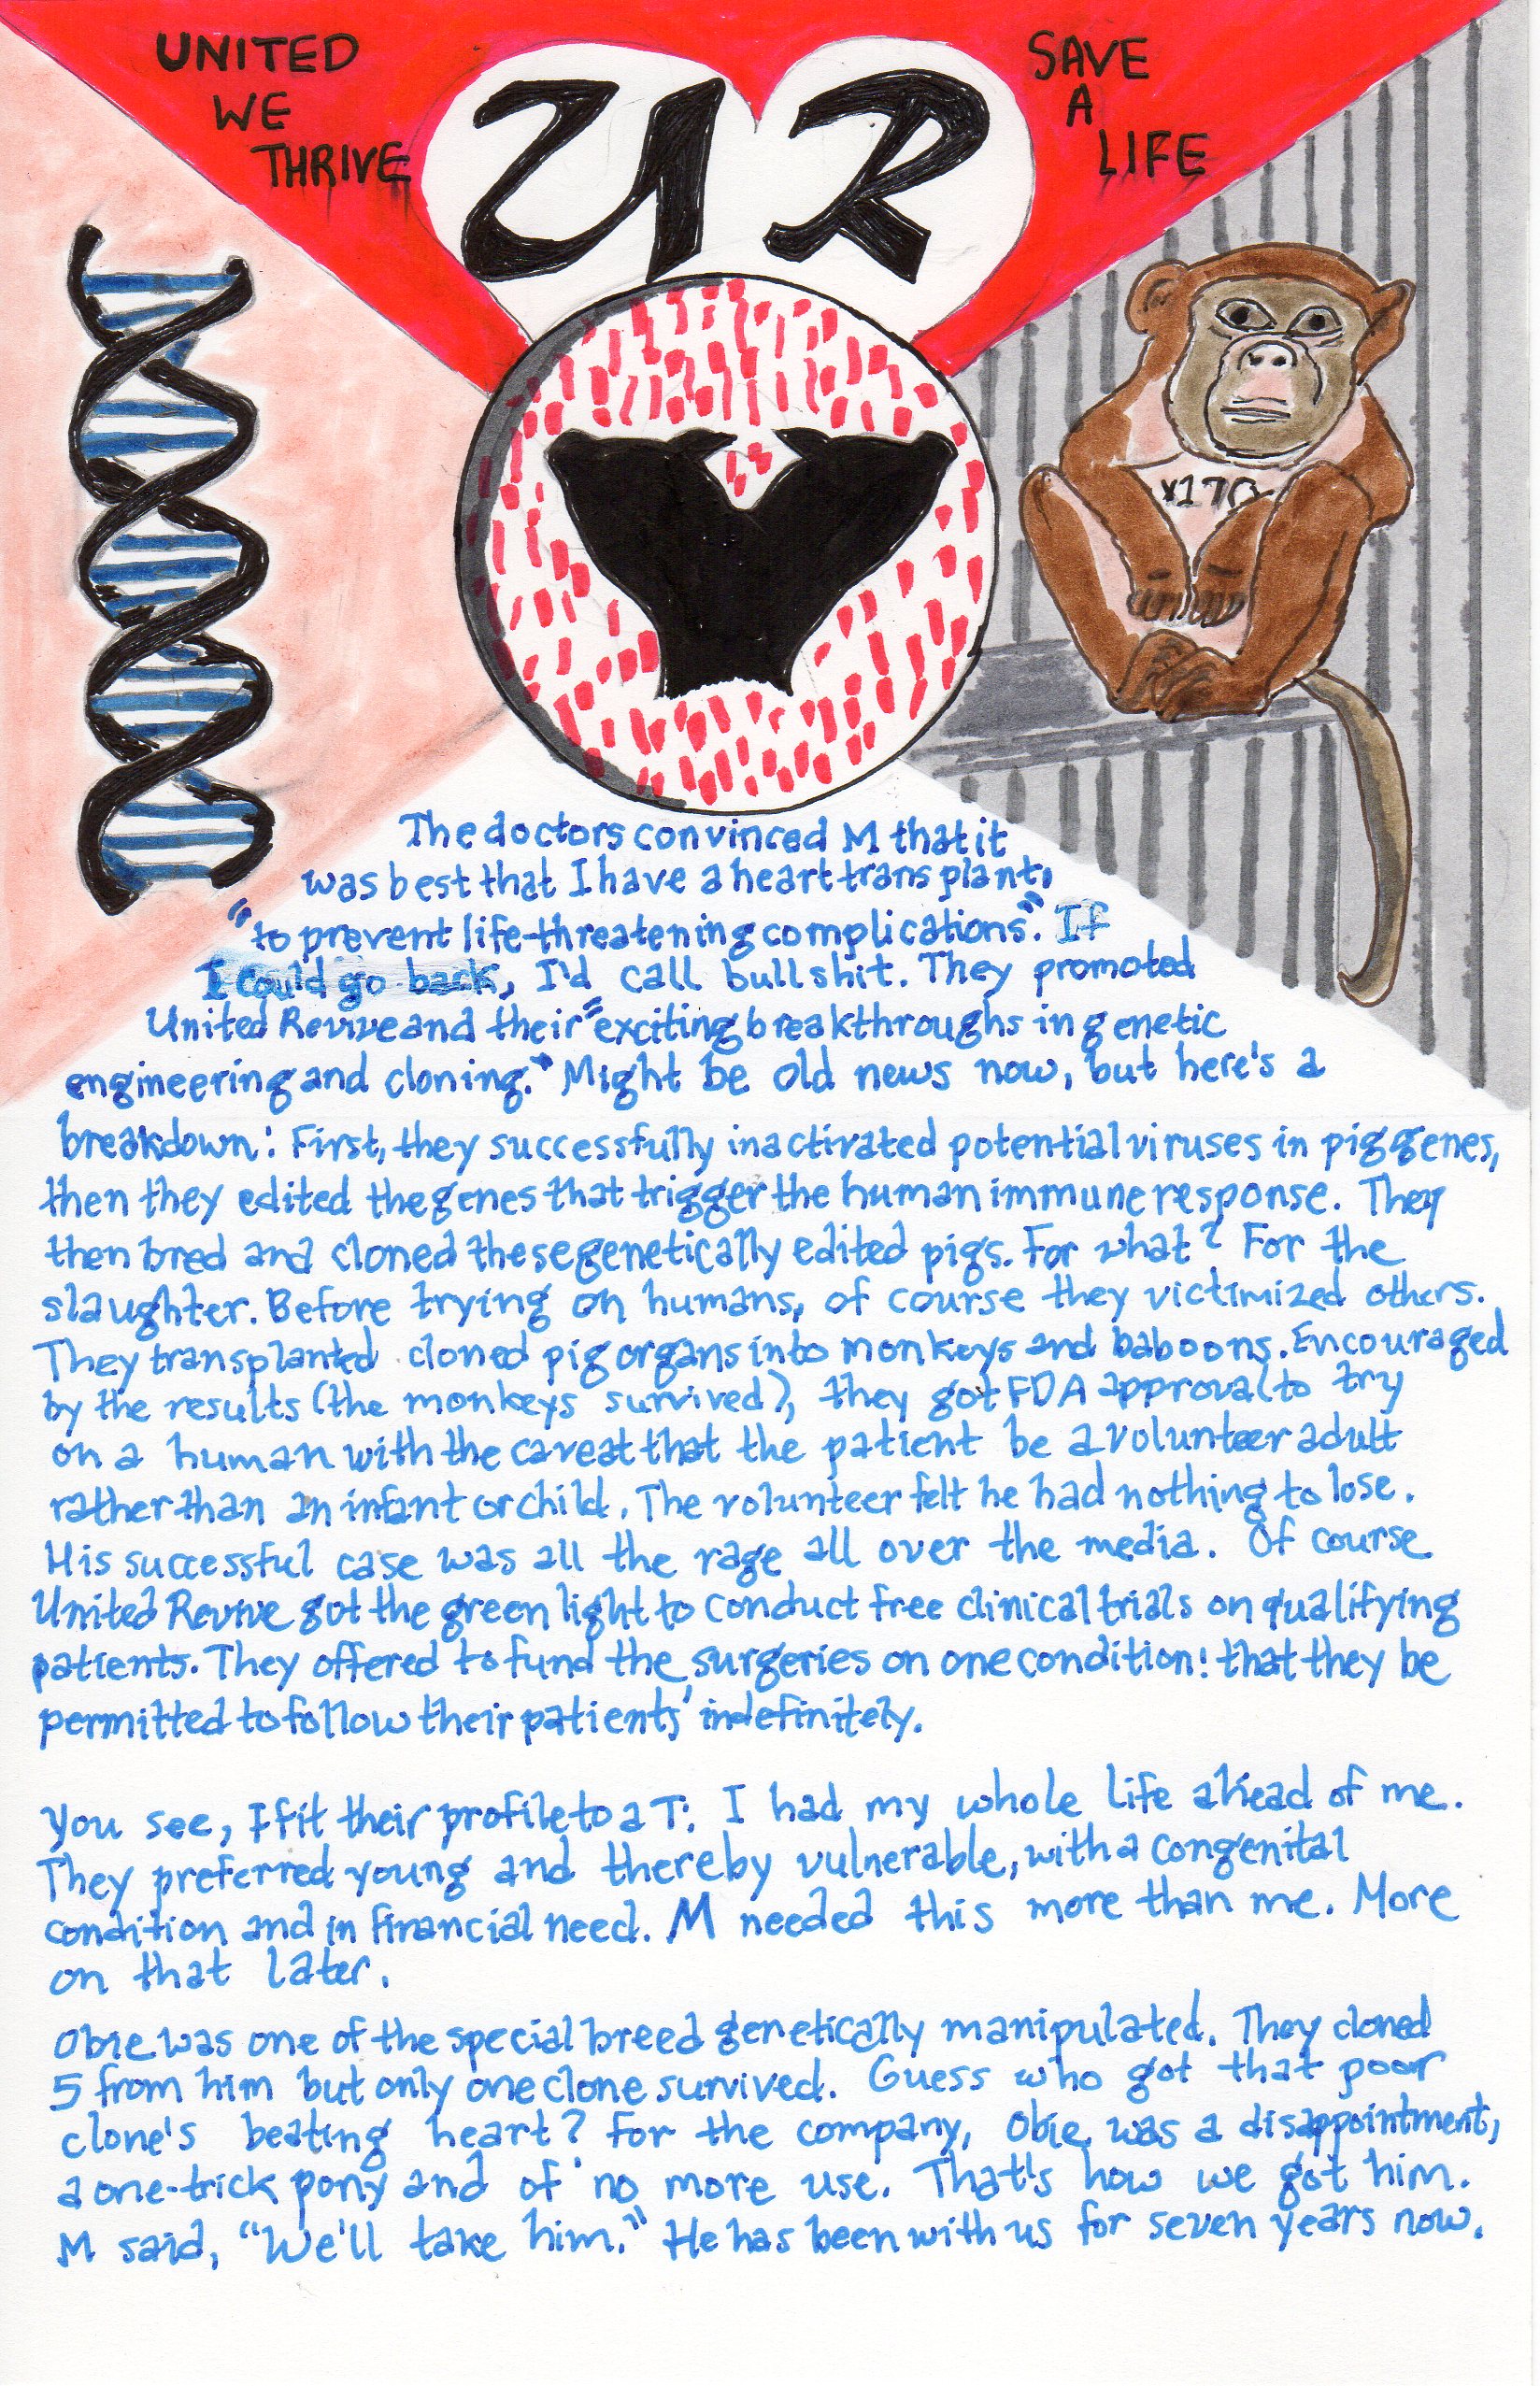 UNITED
WE
THRIVE
UR
SAVE
A
LIFE
The doctors convinced M that it
was best that I have a heart transplant,
"to prevent life-threatening complications". If
I could go back, I'd call bullshit. They promoted
United Revive and their "exciting breakthroughs in genetic
engineering and cloning." Might be old news now, but here's a
breakdown: First, they successfully inactivated potential viruses in pig genes,
then they edited the genes that trigger the human immune response. They
then bred and cloned these genetically edited pigs. For what? For the
slaughter. Before trying on humans, of course they victimized others.
They transplanted cloned pig organs into monkeys and baboons. Encouraged
by the results (the monkeys survived), they got FDA approval to try
on a human with the caveat that the patient be a volunteer adult
rather than an infant or child. The volunteer felt he had nothing to lose.
His successful case was all the rage all over the media. Of course
United Revive got the green light to conduct free clinical trials on qualifying
patients. They offered to fund the surgeries on one condition: that they be
permitted to follow their patients' indefinitely.
You see, I fit their profile to a T: I had my whole life ahead of me.
They preferred young and thereby vulnerable, with a congenital
condition and in financial need. M needed this more than me. More
on that later.
Obie was one of the special breed genetically manipulated. They cloned
5 from him but only one clone survived. Guess who got that poor
clone's beating heart? For the company, Obie was a disappointment,
a one-trick pony and of no more use. That's how we got him.
M said, "We'll take him." He has been with us for seven years now.